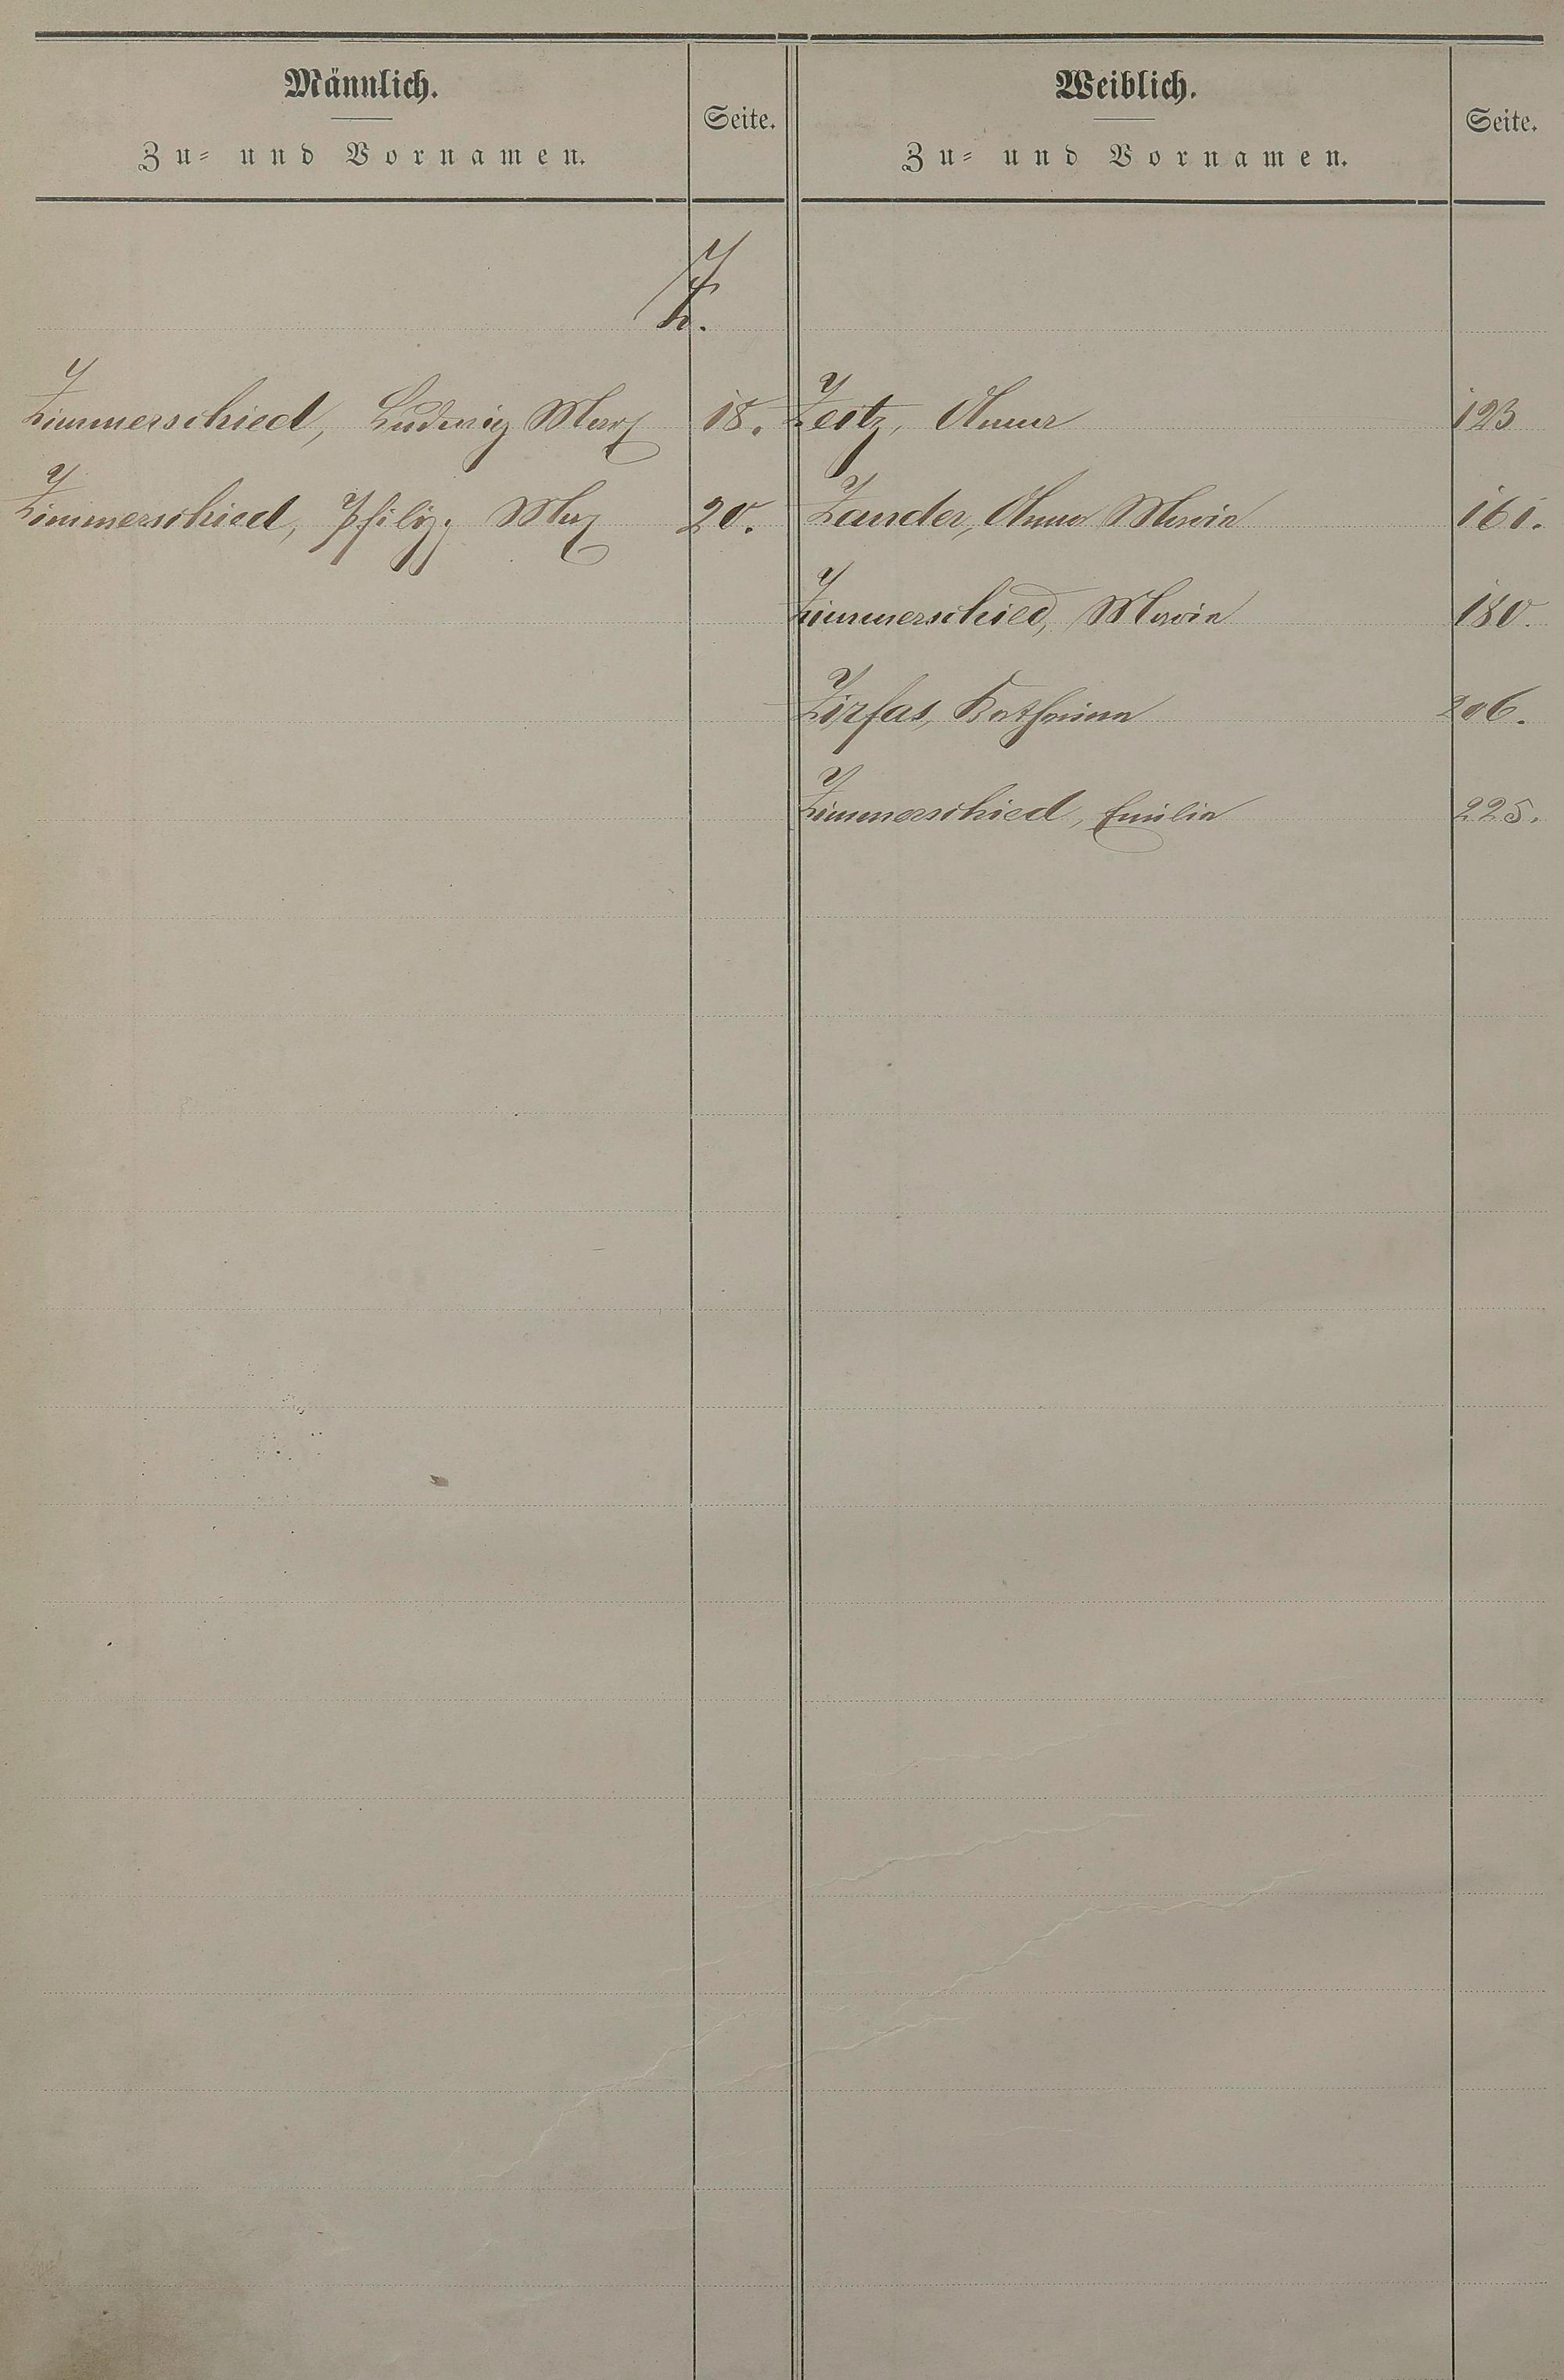 Männlich.
Zu= und Vornamen.
Seite.
Weiblich.
Zu= und Vornamen.
Seite.
Z.
Zimmerschied, Ludwig Max 18.
Zimmerschied, Philipp Max 20.
Zeitz, Anna 123
Zander, Anna Maria 161.
Zimmerschied, Maria 180.
Zirfas, Katharina 206.
Zimmerschied, Emilia 225.